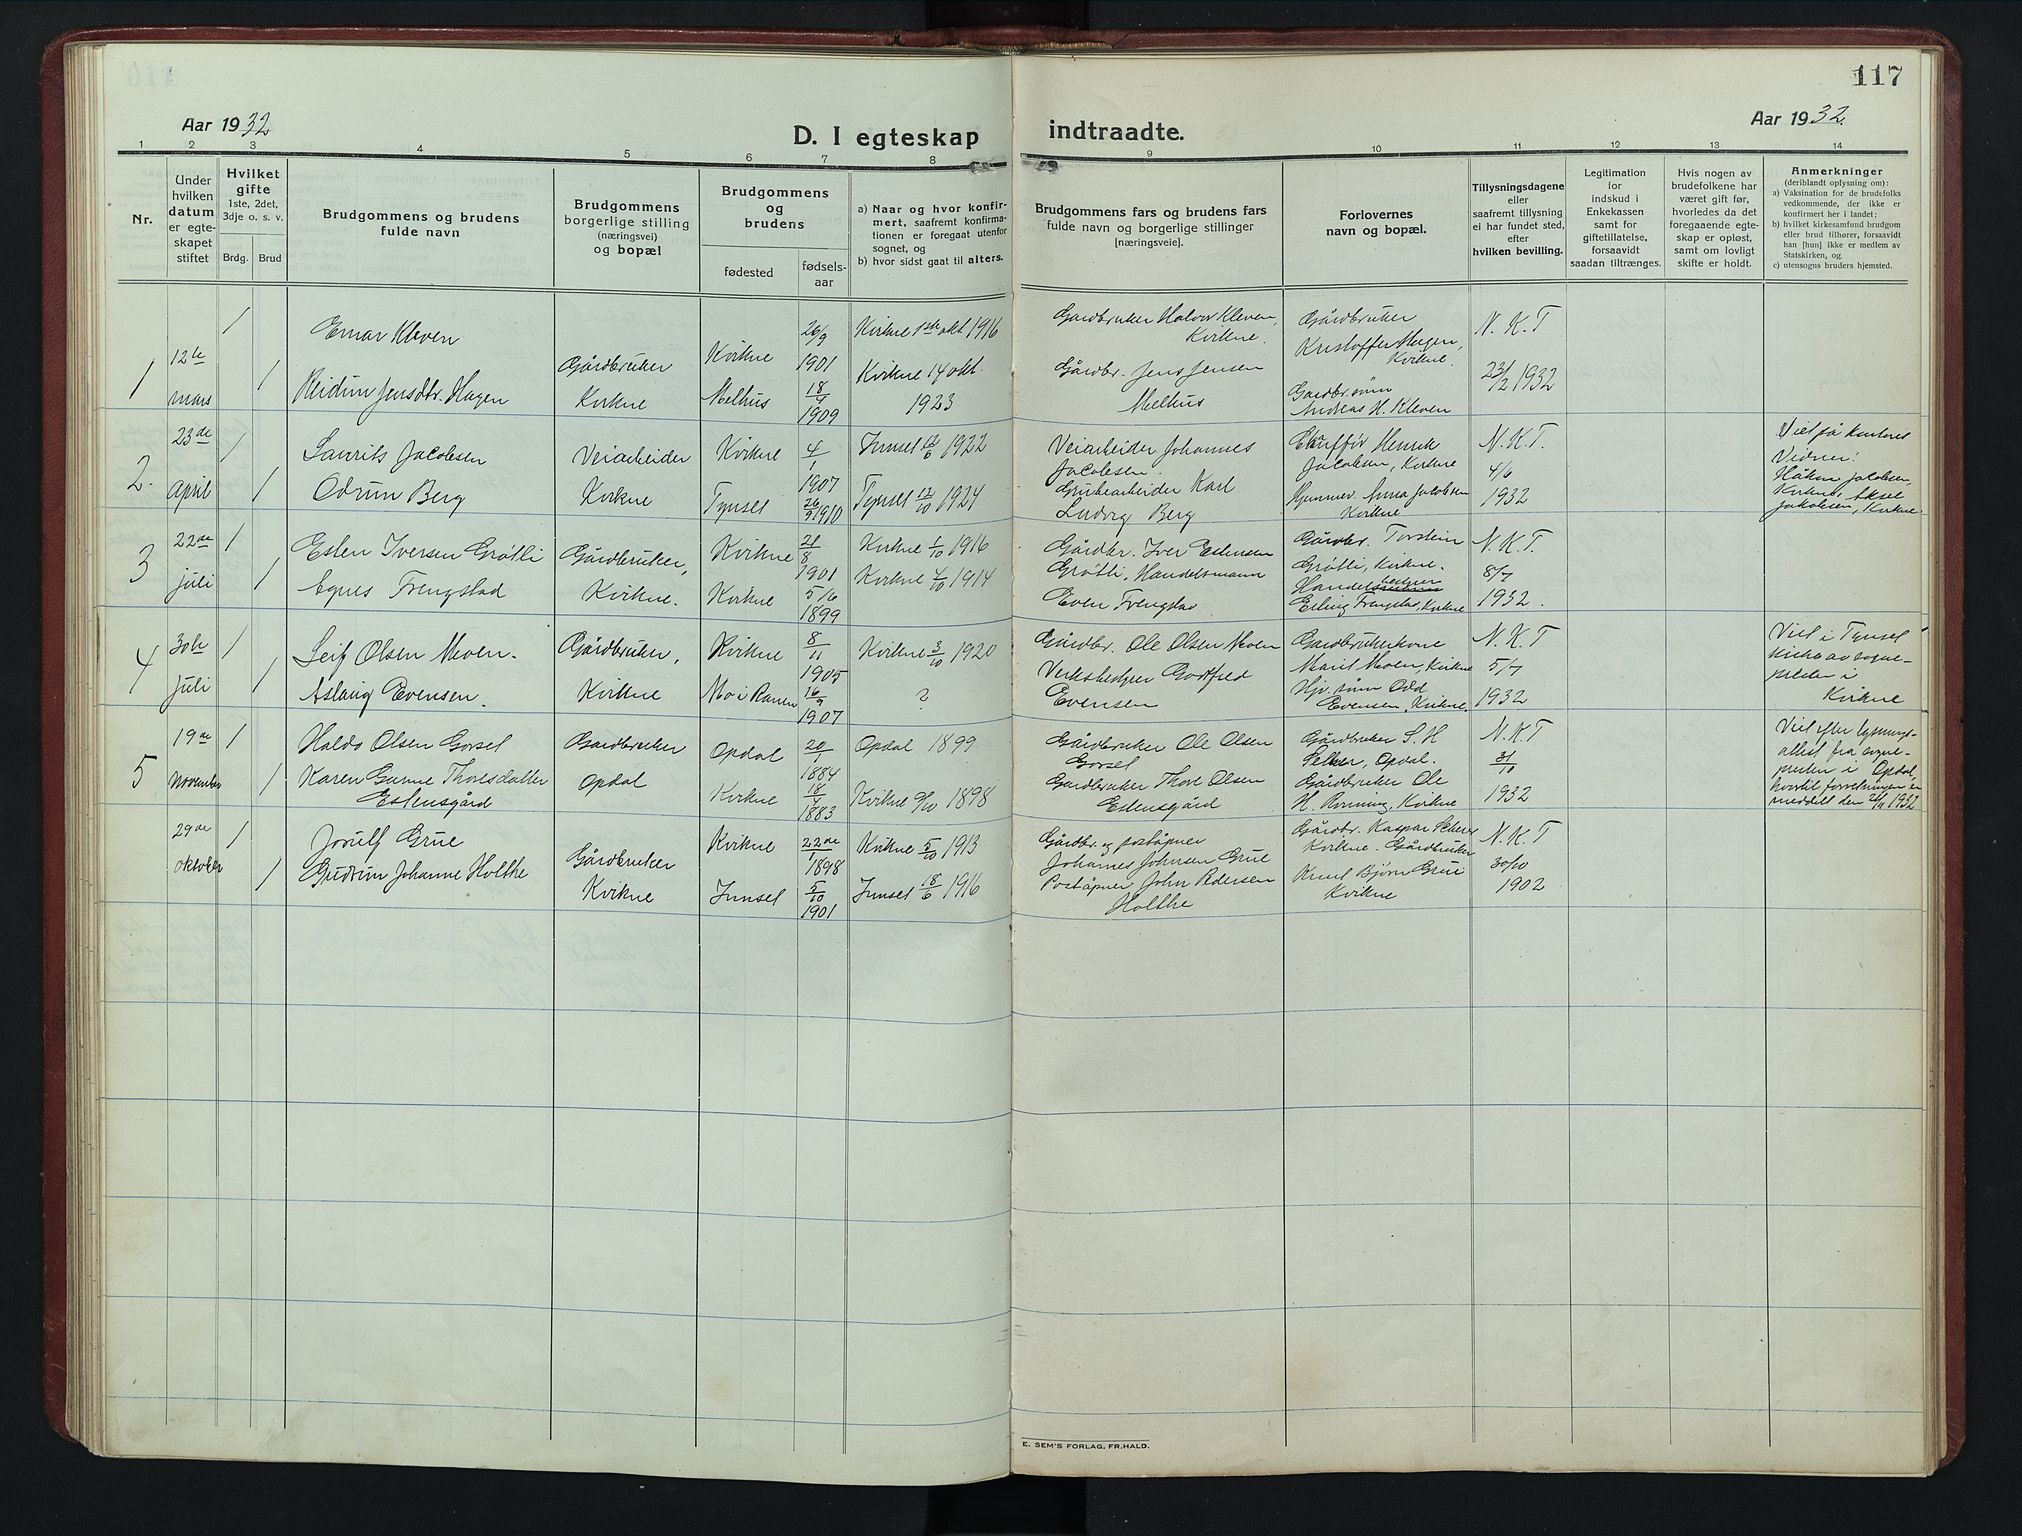 117
Aar 1932
D. I egteskap indtraadte.
Aar 1932.
1 2 3 4 5 6 7 8 9 10 11 12 13 14
Nr.
Under
hvilken
datum
er egte-
skapet
stiftet
Hvilket
gifte
1ste, 2det,
3dje o. s. v.
Brdg. Brud
Brudgommens og brudens
fulde navn
Brudgommens
borgerlige stilling
(næringsvei)
og bopæl
Brudgommens
og
brudens
fødested
fødsels-
aar
a) Naar og hvor konfir-
mert, saafremt konfirma-
tionen er foregaat utenfor
sognet, og
b) hvor sidst gaat til alters.
Brudgommens fars og brudens fars
fulde navn og borgerlige stillinger
[næringsveie].
Forlovernes
navn og bopæl.
Tillysningsdagene
eller
saafremt tillysning
ei har fundet sted,
efter
hvilken bevilling.
Legitimation
for
indskud i
Enkekassen
samt for
giftetillatelse,
forsaavidt
saadan tiltrænges.
Hvis nogen av
brudefolkene har
været gift før,
hvorledes da det
foregaaende egte-
skap er opløst,
samt om lovligt
skifte er holdt.
Anmerkninger
(deriblandt oplysning om):
a) Vaksination for de brudefolks
vedkommende, der ikke er
konfirmert her i landet;
b) hvilket kirkesamfund brudgom
eller brud tilhører, forsaavidt
han [hun] ikke er medlem av
Statskirken, og
c) utensogns bruders hjemsted.
1
12te
mars
1
1
Einar Kleven
Reidun Jensdtr. Hagen
Gårdbruker
Kvikne
Kvikne
Melhus
26/9
1901
18/4
1909
Kvikne 1ste okt 1916
Kvikne 14 okt.
1923
Gardbruker Halvor Kleven,
Kvikne.
Gårdbr. Jens Jensen
Melhus
Gårdbruker
Kristoffer Hagen,
Kvikne.
Gardbr.sønn
Andreas H. Kleven
N. K. T
23/2 1932
2.
23de
april
1
1
Laurits Jacobsen
Odrun Berg
Veiarbeider
Kvikne
Kvikne
Tynset
4/1
1907
26/9 1910
Innset 12/6 1922
Tynset 12/10 1924
Veiarbeider Johannes
Jacobsen.
Grubearbeider Karl
Ludvig Berg
Henrik
Jacobsen, Kvikne
Hjemmev. Anna Jacobsen
Kvikne
N. K. T.
4/6
1932
Viet på kontoret
Vidner:
Håkon Jacobsen,
Kvikne, Aksel
Jakobsen, Kvikne.
3
22de
juli
1
1
Esten Iversen Grøtli
Agnes Frengstad
Gårdbruker,
Kvikne.
Kvikne
Kvikne
21/8
1901
5/6
1899
Kvikne 1/10 1916
Kvikne 4/10 1914
Gårdbr. Iver Estensen
Grøtli, Handelsmann
Even Frengstad
Gårdbr. Torstein
Grøtli, Kvikne.
Handelsbestyrer
Erling Frengstad, Kvikne
N. K. T.
8/7
1932.
4
30te
juli
1
1
Leif Olsen Moen.
Aslaug Evensen.
Gårdbruker,
Kvikne
Kvikne
Mo i Ranen
8/11
1905
16/9
1907
Kvikne 3/10 1920
?
Gårdbr. Ole Olsen Moen
Verksbestyrer Godtfred
Evensen
Gardbrukerkone
Marit Moen, Kvikne
Hjv. sønn Odd
Evensen, Kvikne.
N. K. T
5/7
1932
Viet i Tynset
kirke av sogne-
presten i
Kvikne
5
19de
november
1
1
Haldo Olsen Gorset
Karen Gurine Thoresdatter
Estensgård
Gardbruker
Opdal
Opdal
Kvikne
20/1
1884
18/4
1883
Opdal 1899
Kvikne 9/10 1898
Gårdbruker Ole Olsen
Gorset
Gardbruker Thore Olsen
Estensgård
Gårdbruker S. H
Opdal.
Gårdbruker Ole
H. Rønning, Kvikne
N. K. T
31/10
1932
Viet efter lysnings-
attest fra sogne-
presten i Opdal,
hvortil forretningen er
meddelt den 21/11 1932
29de
oktober
1
1
Jorulf Grue
Gudrun Johanne Holthe
Gårdbruker
Kvikne
Kvikne
Innset
22de/1
1898
5/10
1901
Kvikne 5/10 1913
Innset 18/6 1916
Gårdbr. og poståpner
Johannes Johnsen Grue
Poståpner John Pedersen
Holthe
Gårdbr. Kaspar
Kvikne. Gårdbruker
Knut Bjørn Grue
Kvikne
N. K. T
30/10
1902
E. SEM'S FORLAG, FR.HALD.